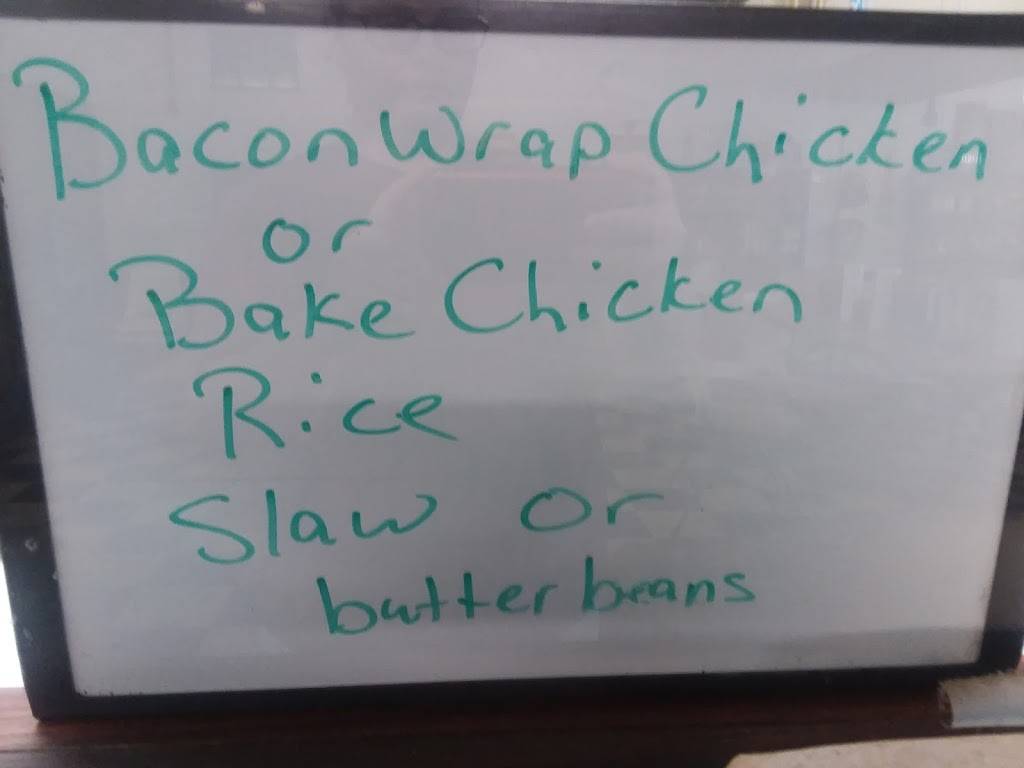 Bacon Wrap Chicken
or
Bake Chicken
Rice
Slaw or
butter beans